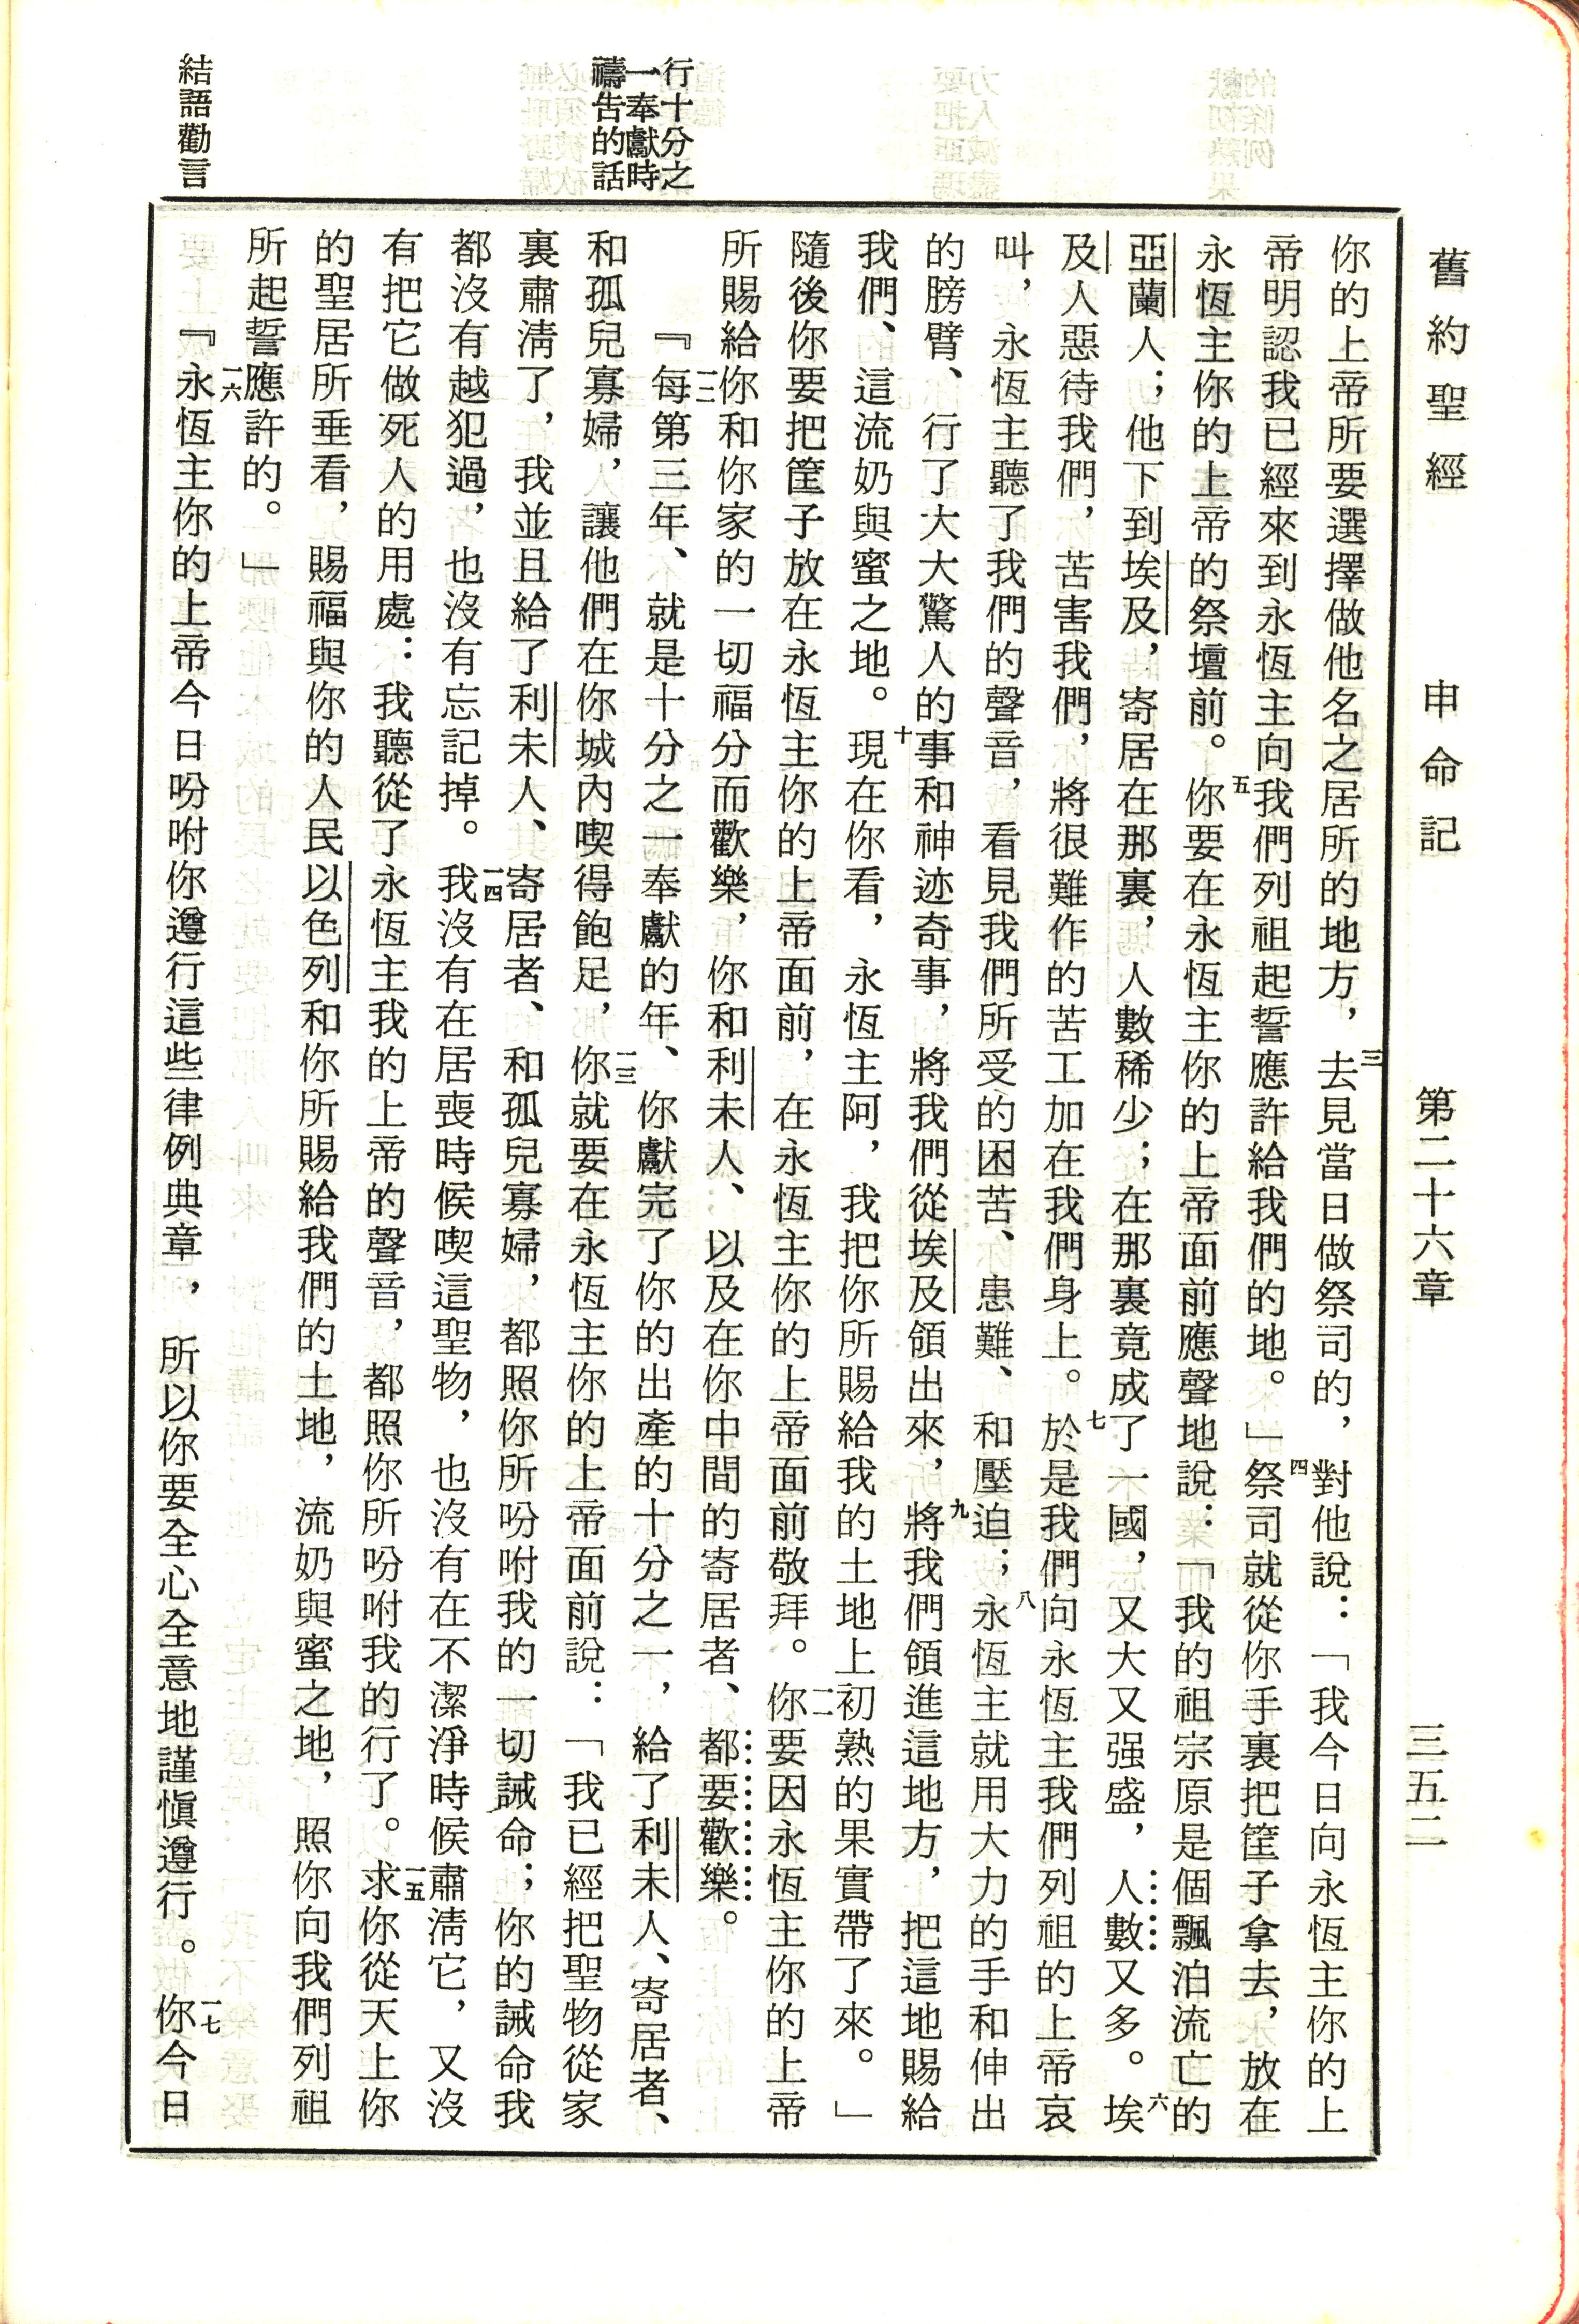 舊約聖經　申命記　第二十六章　三五二
你的上帝所要選擇做他名之居所的地方，三去見當日做祭司的，對他說：「我今日向永恆主你的上
帝明認我已經來到永恆主向我們列祖起誓應許給我們的地。」四祭司就從你手裏把筐子拿去，放在
永恆主你的上帝的祭壇前。五你要在永恆主你的上帝面前應聲地說：「我的祖宗原是個飄泊流亡的
亞蘭人；他下到埃及，寄居在那裏，人數稀少；在那裏竟成了一國，又大又强盛，人數又多。六埃
及人惡待我們，苦害我們，將很難作的苦工加在我們身上。七於是我們向永恆主我們列祖的上帝哀
叫，永恆主聽了我們的聲音，看見我們所受的困苦、患難、和壓迫；八永恆主就用大力的手和伸出
的膀臂、行了大大驚人的事和神迹奇事，將我們從埃及領出來，九將我們領進這地方，把這地賜給
我們、這流奶與蜜之地。十現在你看，永恆主阿，我把你所賜給我的土地上初熟的果實帶了來。」
隨後你要把筐子放在永恆主你的上帝面前，在永恆主你的上帝面前敬拜。一一你要因永恆主你的上帝
所賜給你和你家的一切福分而歡樂，你和利未人、以及在你中間的寄居者、都要歡樂。
行十分之
一奉獻時
禱告的話
『一二每第三年、就是十分之一奉獻的年、你獻完了你的出產的十分之一，給了利未人、寄居者、
和孤兒寡婦，讓他們在你城內喫得飽足，一三你就要在永恆主你的上帝面前說：「我已經把聖物從家
裏肅淸了，我並且給了利未人、寄居者、和孤兒寡婦，都照你所吩咐我的一切誡命；你的誡命我
都沒有越犯過，也沒有忘記掉。一四我沒有在居喪時候喫這聖物，也沒有在不潔淨時候肅淸它，又沒
有把它做死人的用處：我聽從了永恆主我的上帝的聲音，都照你所吩咐我的行了。一五求你從天上你
的聖居所垂看，賜福與你的人民以色列和你所賜給我們的土地，流奶與蜜之地，照你向我們列祖
所起誓應許的。」
結語勸言
『一六永恆主你的上帝今日吩咐你遵行這些律例典章，所以你要全心全意地謹愼遵行。一七你今日